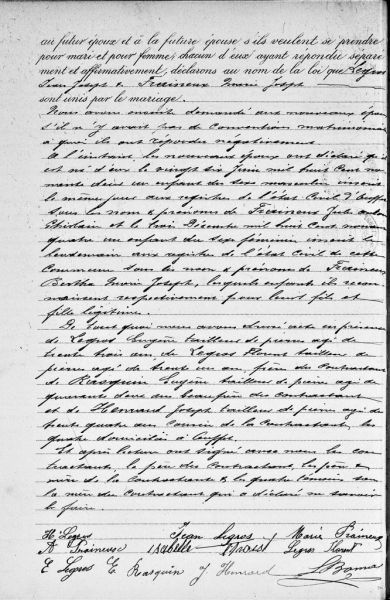 au futur époux et à la future épouse s'ils veulent se prendre
pour mari et pour femme; chacun d'eux ayant répondu séparé-
ment et affirmativement, déclarons au nom de la loi que Legros
Jean Joseph & Fraineux Marie Joseph
sont unis par le mariage.
Nous avons ensuite demandé aux nouveaux épou
s'il n'y avait pas de conventions matrimonia
à quoi ils ont répondu négativement.
A l'instant les nouveaux époux ont déclaré qu
est né d'eux le vingt six Juin mil huit cent no
nante deux un enfant du sexe masculin inscrit
le même jour aux registres de l'état civil d'Ouffet
sous les nom & prénoms de Fraineux Jules
Ghislain et le trois Décembre mil huit cent nonan
quatre un enfant du sexe féminin inscrit le
lendemain aux registres de l'état civil de cette
commune sous les nom & prénoms de Fraineux
Bertha Marie Joseph, lesquels enfants ils recon
naissent respectivement pour leurs fils et
fille légitimes.
De tout quoi nous avons dressé acte en présence
de Legros Eugène tailleur de pierres agé de
trente trois ans, de Legros Florent tailleur de
pierres agé de trente un ans, frères du contractant
de Rasquin Eugène tailleur de pierres agé de
quarante deux ans beau frère du contractant
et de Henrard Joseph tailleur de pierres agé de
trente quatre ans cousin de la contractante, les
quatre domiciliés à Ouffet.
Et après lecture ont signé avec nous les con
tractants, le père du contractant, les père &
mère de la contractante & les quatre témoins sauf
la mère du contractant qui a déclaré ne savoir
le faire.
H Legros Jean Legros Marie Fraineux
A Fraineux Isabelle Legros Florent
E Legros E Rasquin J Henrard